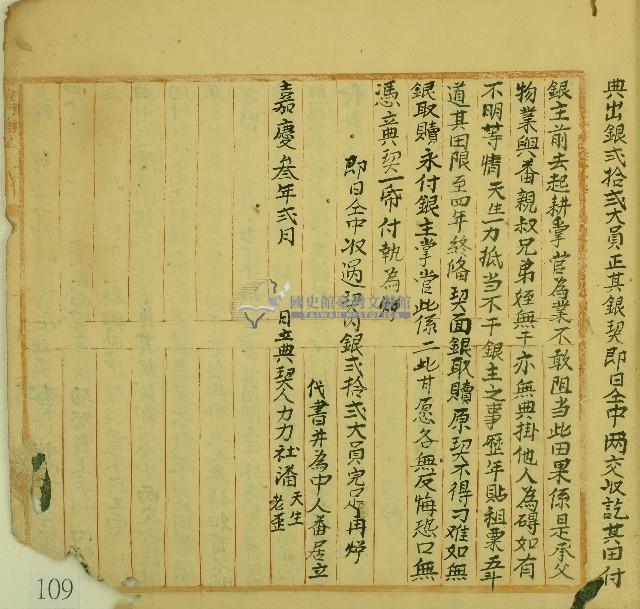 典出銀弍拾弍大員正其銀契即日仝中両交收訖其田付
銀主前去起耕掌管為業不敢阻当此田果係是承父
物業與番親叔兄弟侄無干亦無典掛他人為碍如有
不明等情天生一力抵当不干銀主之事歷年貼租粟五斗
道其田限至四年終俻契面銀取贖原契不得刁难如無
銀取贖永付銀主掌管此係二比甘愿各無反悔恐口無
憑立典契一帋付執為炤
即日仝中收過契内銀弍拾弍大員完足再炤
代書并為中人番居立
嘉慶叁年弍月 日立典契人力力社潘天生
老歪
國史館臺灣文獻館
TAIWAN HISTORICA
109